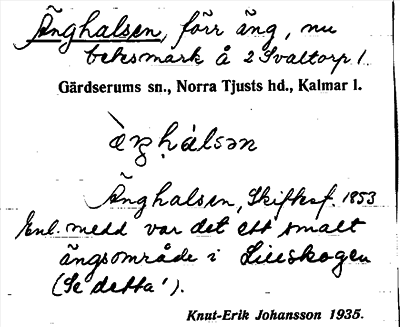 Änghalsen, förr äng, nu
betesmark å 2 Svaltorp 1.
Gärdserums sn., Norra Tjusts hd., Kalmar l.
Änghalsen, Skifteskf. 1853
Enl. medd var det ett smalt
ängsområde i Lillskogen
(Se detta!).
Knut-Erik Johansson 1935.